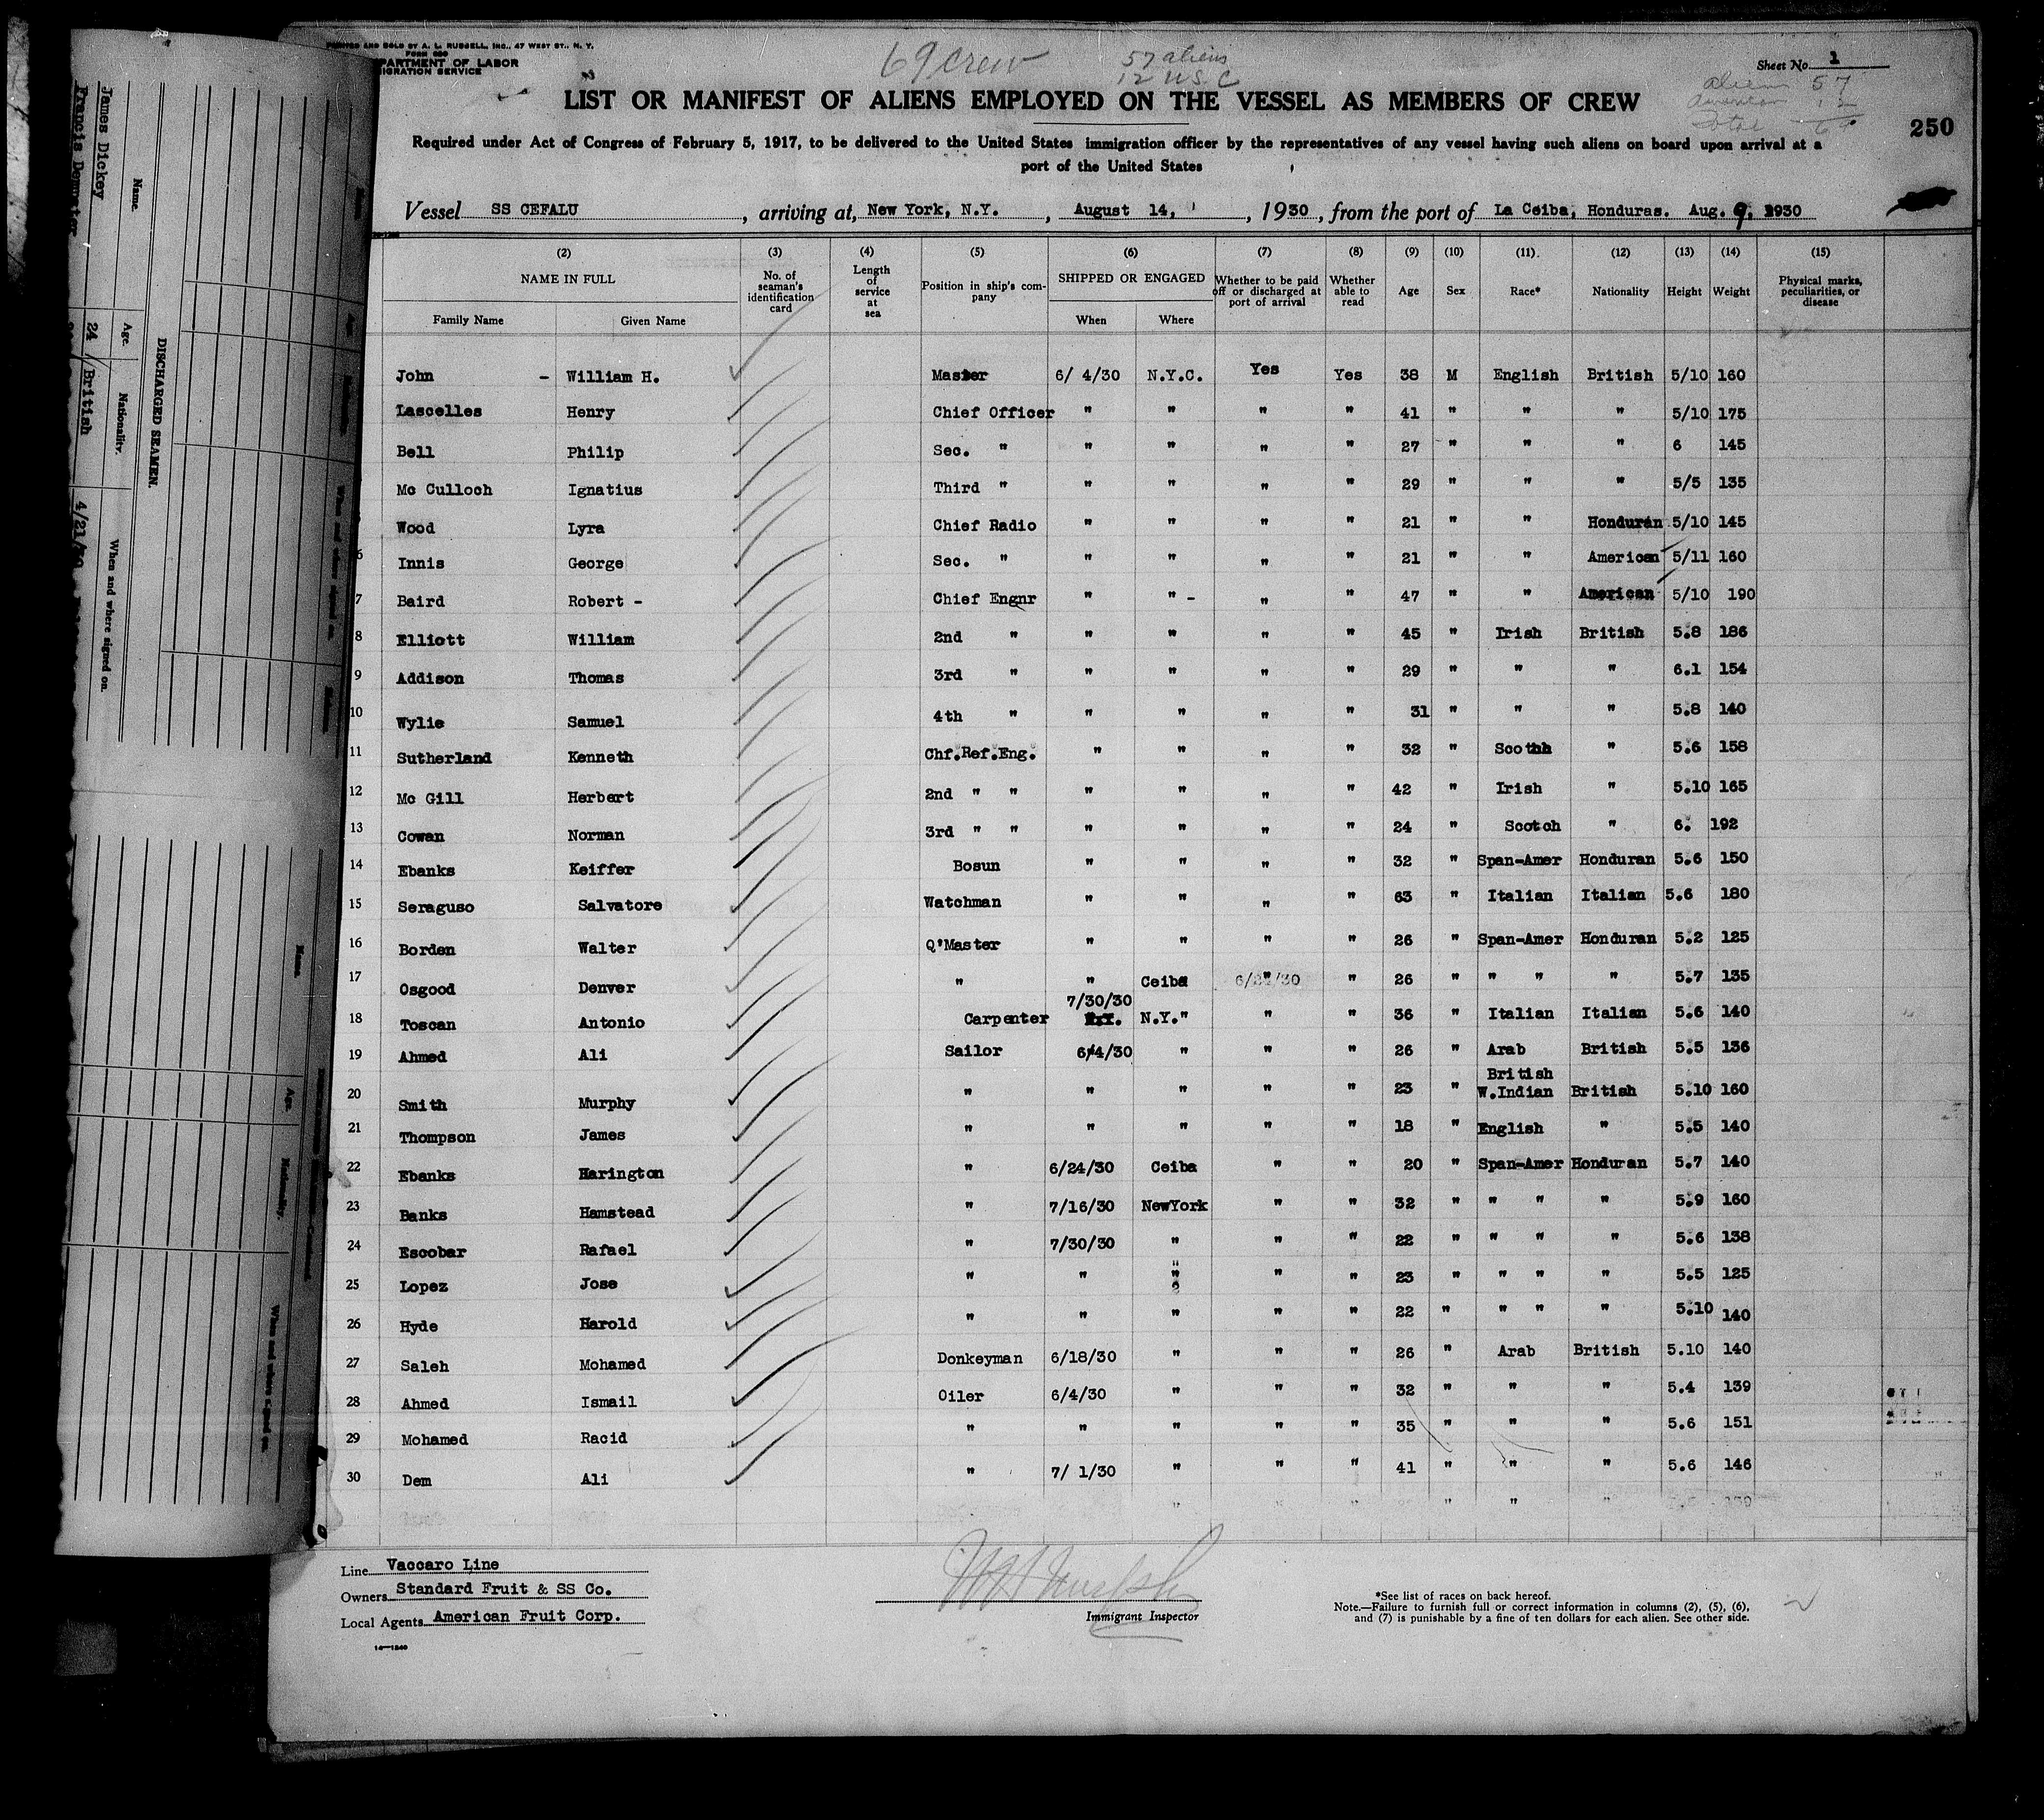 PRINTED AND SOLD BY A. L. RUSSELL, INC., 47 WEST ST., N. Y.
FORM 680
PARTMENT OF LABOR
MIGRATION SERVICE
69 crew
57 aliens
12 U.S.C
Sheet No. 1
aliens 57
American 12
Total 69
LIST OR MANIFEST OF ALIENS EMPLOYED ON THE VESSEL AS MEMBERS OF CREW
250
Required under Act of Congress of February 5, 1917, to be delivered to the United States immigration officer by the representatives of any vessel having such aliens on board upon arrival at a
port of the United States
Vessel SS CEFALU, arriving at, New York, N.Y., August 14, 1930, from the port of La Ceiba, Honduras. Aug. 9, 1930
(2) (3) (4) (5) (6) (7) (8) (9) (10) (11). (12) (13) (14) (15)
NAME IN FULL No. of seaman's identification card Length of service at sea Position in ship's company SHIPPED OR ENGAGED Whether to be paid off or discharged at port of arrival Whether able to read Age Sex Race* Nationality Height Weight Physical marks, peculiarities, or disease
Family Name Given Name When Where
John - William H. Master 6/ 4/30 N.Y.C. Yes Yes 38 M English British 5/10 160
Lascelles Henry Chief Officer " " " " 41 " " " 5/10 175
Bell Philip Sec. " " " " " 27 " " " 6 145
Mc Culloch Ignatius Third " " " " " 29 " " " 5/5 135
Wood Lyra Chief Radio " " " " 21 " " Honduran 5/10 145
6 Innis George Sec. " " " " " 21 " " American 5/11 160
7 Baird Robert - Chief Engnr " " - " " 47 " " American 5/10 190
8 Elliott William 2nd " " " " " 45 " Irish British 5.8 186
9 Addison Thomas 3rd " " " " " 29 " " " 6.1 154
10 Wylie Samuel 4th " " " " " 31 " " " 5.8 140
11 Sutherland Kenneth Chf.Ref.Eng. " " " " 32 " Scothh " 5.6 158
12 Mc Gill Herbert 2nd " " " " " " 42 " Irish " 5.10 165
13 Cowan Norman 3rd " " " " " " 24 " Scotch " 6. 192
14 Ebanks Keiffer Bosun " " " " 32 " Span-Amer Honduran 5.6 150
15 Seraguso Salvatore Watchman " " " " 63 " Italian Italian 5.6 180
16 Borden Walter Q'Master " " " " 26 " Span-Amer Honduran 5.2 125
17 Osgood Denver " " Ceiba 6/24/30 " " 26 " " " " 5.7 135
18 Toscan Antonio Carpenter 7/30/30 N.Y. N.Y." " " 36 " Italian Italian 5.6 140
19 Ahmed Ali Sailor 6/4/30 " " " 26 " Arab British 5.5 136
20 Smith Murphy " " " " " 23 " British W.Indian British 5.10 160
21 Thompson James " " " " " 18 " English " 5.5 140
22 Ebanks Harington " 6/24/30 Ceiba " " 20 " Span-Amer Honduran 5.7 140
23 Banks Hamstead " 7/16/30 NewYork " " 32 " " " " 5.9 160
24 Escobar Rafael " 7/30/30 " " " 22 " " " " 5.6 138
25 Lopez Jose " " " " " 23 " " " " 5.5 125
26 Hyde Harold " " " " " 22 " " " " 5.10 140
27 Saleh Mohamed Donkeyman 6/18/30 " " " 26 " Arab British 5.10 140
28 Ahmed Ismail Oiler 6/4/30 " " " 32 " " " 5.4 139
29 Mohamed Racid " " " " " 35 " " " 5.6 151
30 Dem Ali " 7/ 1/30 " " " 41 " " " 5.6 146
Line Vaccaro Line
Owners Standard Fruit & SS Co.
Local Agents American Fruit Corp.
14—1240
Immigrant Inspector
*See list of races on back hereof.
Note.—Failure to furnish full or correct information in columns (2), (5), (6),
and (7) is punishable by a fine of ten dollars for each alien. See other side.
DISCHARGED SEAMEN.
Name. Age. Nationality. When and where signed on.
James Dickey 24 British 4/21/30
Francis Dempster